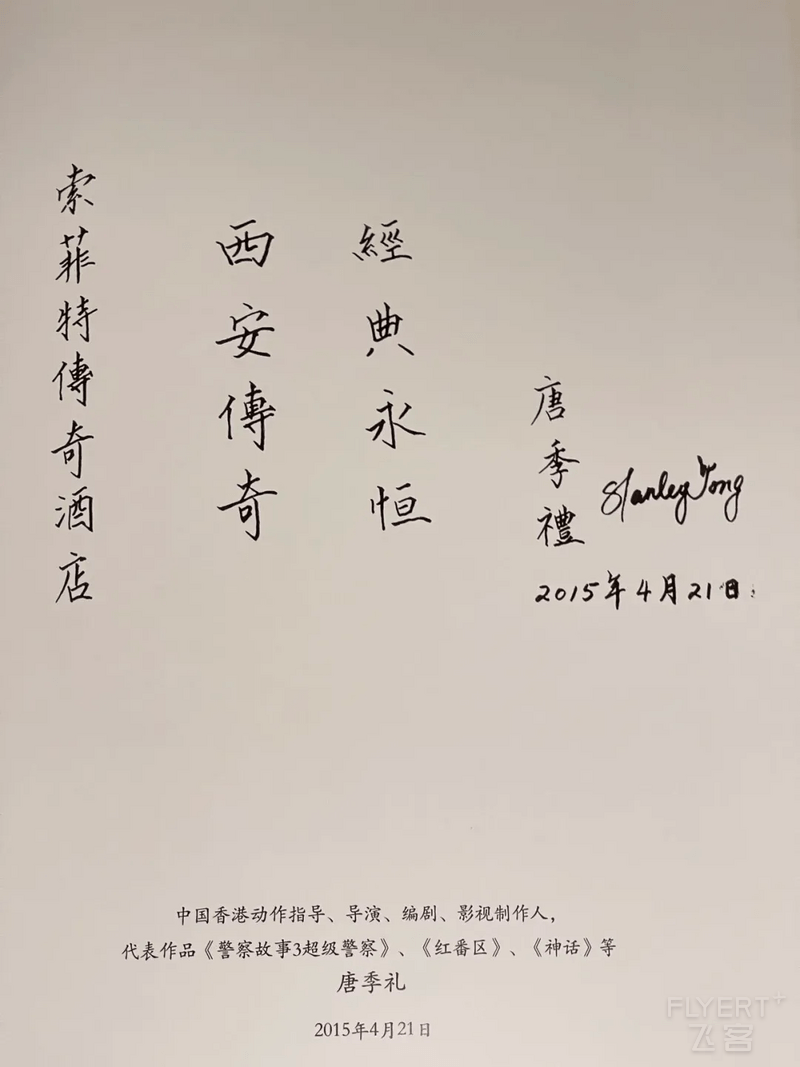 索菲特傳奇酒店
西安傳奇
經典永恒
唐季禮
Stanley Tong
2015年4月21日
中国香港动作指导、导演、编剧、影视制作人，
代表作品《警察故事3超级警察》、《红番区》、《神话》等
唐季礼
2015年4月21日
FLYERT+
飞客